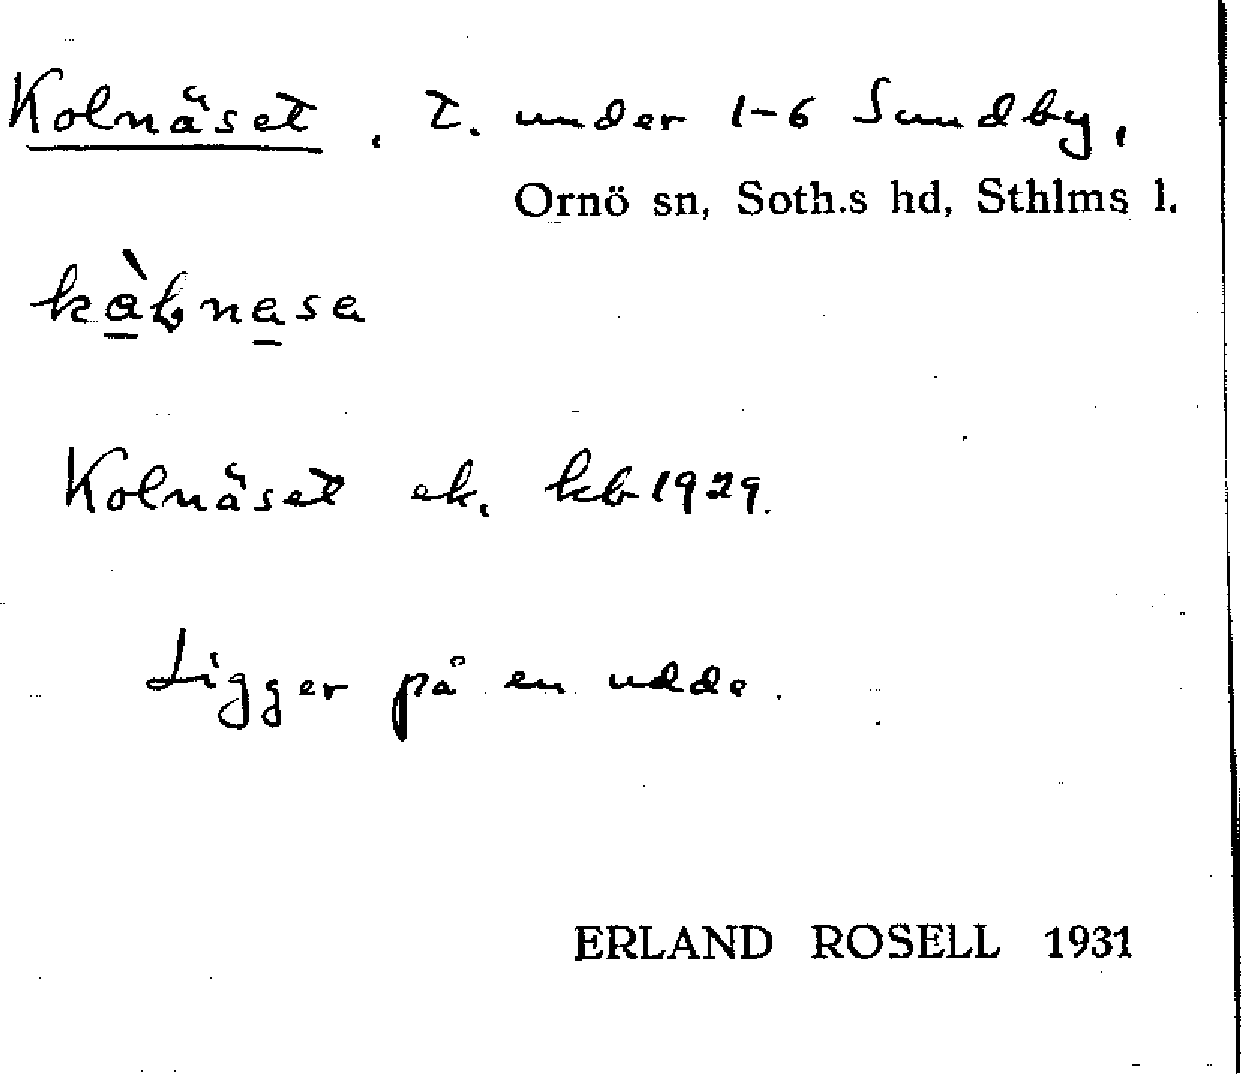 Kolnäset, T. under 1-6 Sundby,
Ornö sn, Soth.s hd, Sthlms l.
Kolnäset ek. kb 1929.
Ligger på en udde.
ERLAND ROSELL 1931